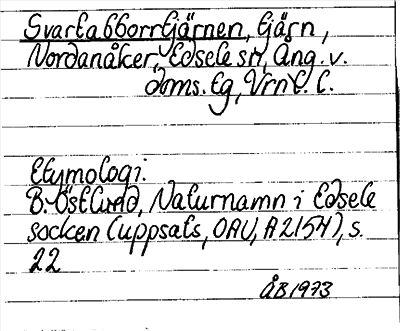 Svartabborrtjärnen, tjärn,
Nordanåker, Edsele sn, Ång. v.
doms. tg, Vrnl. l.
Etymologi.
B. Östlund, Naturnamn i Edsele
socken (uppsats, OAU, A2154), s.
22
ÅB 1973